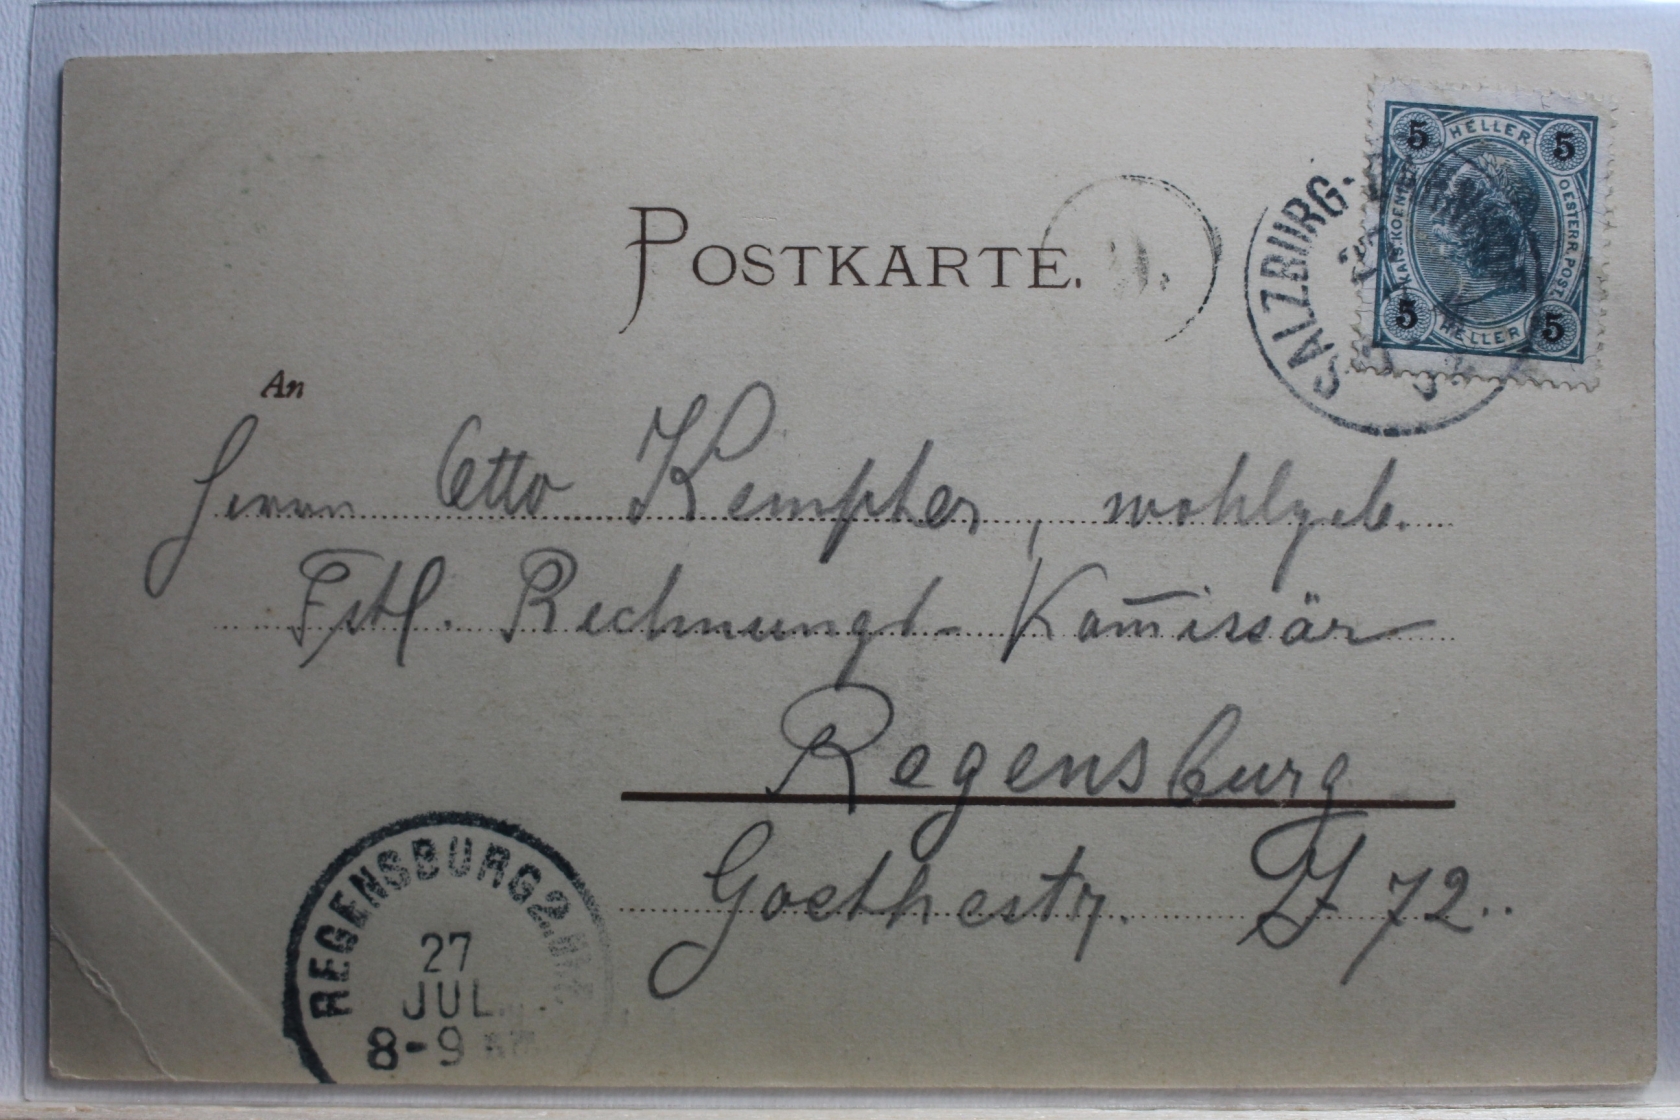 POSTKARTE.
5 HELLER 5
KAIS. KOENIGL.
OESTERR. POST.
5 HELLER 5
SALZBURG.
An
Herrn Otto Kempter, wohlgeb.
Fstl. Rechnungs- Kom̅issär
Regensburg
Goethestr. 72..
REGENSBURG 2.
27
JUL
8-9